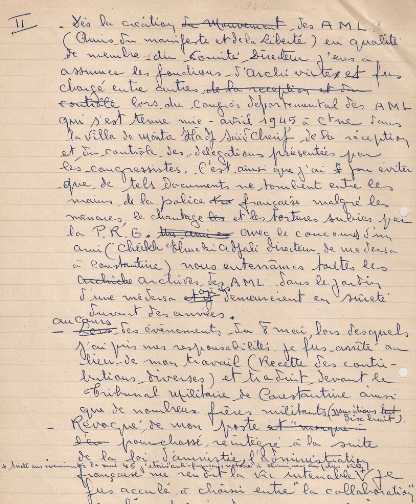 II
. Dès la création du Mouvement des AML
(Amis du manifeste et de la Liberté) en qualité
de membre du Comité Directeur j'eus à
assumer les fonctions d'Archiviste et fus
chargé entre autres de la reception et du
contrôle lors du Congrès départemental des AML
qui s'est tenue mi-avril 1945 à Ctne dans
la Villa de Hadj Cherif de la réception
et du contrôle des délégations présentées par
les congressistes. C'est ainsi que j'ai pu éviter
que de tels documents ne tombent entre les
mains de la police française malgré les
menaces, le chantage et les tortures subies par
la P.R.G. Un ami avec le concours d'un
ami (Cheikh Directeur de medersa
à Constantine) nous enterrâmes toutes les
archives archives des AML dans le jardin
d'une medersa et demeurèrent en sûreté
durant des années.
au cours
Lors des événements du 8 mai, lors desquels
j'ai pris mes responsabilités je fus arrêté au
lieu de mon travail (Recette des contri-
butions diverses) et traduit devant le
Tribunal Militaire de Constantine ainsi
que de nombreux frères militants (nous étions
- Révoqué de mon poste et
pourchassé, réintégré à la suite
de la loi d'amnistie, l'administration
française me rendit la vie intenable je
fus acculé à choisir entre "la collaborati